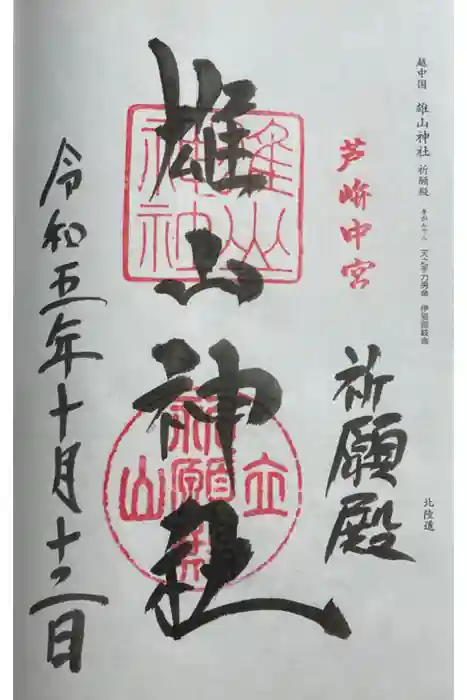 越中国 雄山神社 祈願殿
きがんでん
天之手力男命 伊弉諾岐命
北陸道
芦峅中宮
祈願殿
雄山神社
雄山神社
立山祈願殿
令和五年十月十二日